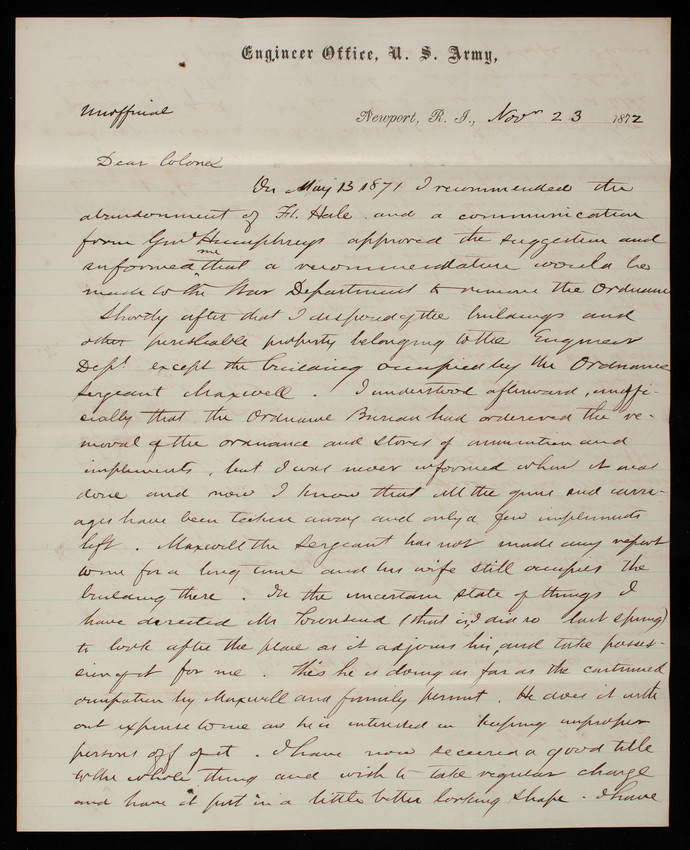 Engineer Office, U. S. Army,
Unofficial
Newport, R. I., Novr 23 1872
Dear Colonel
On May 13 1871 I recommended the
abandonment of Ft. Hale and a communication
from Genl Humphreys approved the suggestion and
me
informed that a recommendation would be
made to the War Department to remove the Ordnance
Shortly after that I disposed of the buildings and
other perishable property belonging to the Engineer
Dept. except the building occupied by the Ordnance
Sergeant Maxwell. I understood afterward, unoffi-
cially that the Ordnance Bureau had ordered the re-
moval of the ordnance and stores of ammunition and
implements, but I was never informed when it was
done and now I know that all the guns and carri-
ages have been taken away and only a few implements
left. Maxwell the Sergeant has not made any report
to me for a long time and his wife still occupies the
building there. In the uncertain state of things I
have directed Mr Townsend (that is, I did so last spring)
to look after the place as it adjoins his, and take posses-
sion of it for me. This he is doing as far as the continued
occupation by Maxwell and family permit. He does it with
out expense to me as he is interested in keeping improper
persons off of it. I have now secured a good title
to the whole thing and wish to take regular charge
and have it put in a little better looking shape. I have